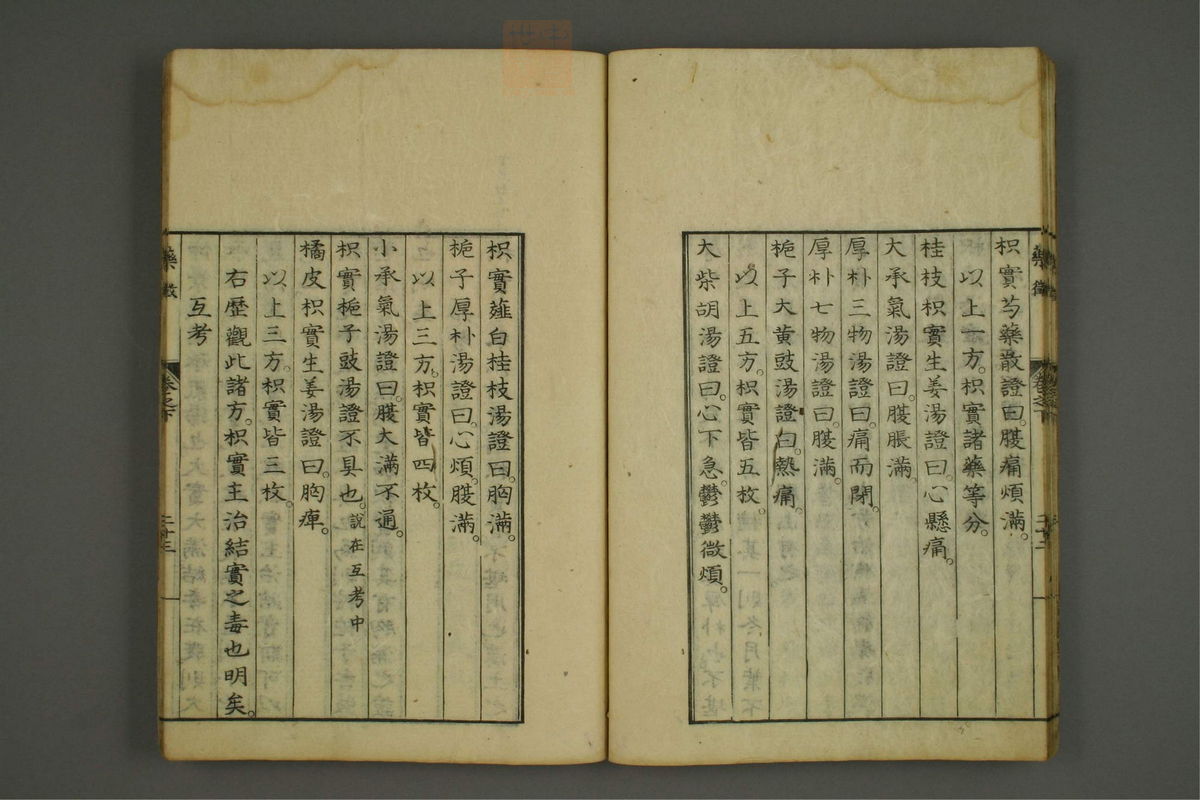 藥徵
卷之下
二十三
枳實芍藥散證曰。腹痛煩滿。
以上一方。枳實諸藥等分。
桂枝枳實生姜湯證曰。心懸痛。
大承氣湯證曰。腹脹滿。
厚朴三物湯證曰。痛而閉。
厚朴七物湯證曰。腹滿。
梔子大黃豉湯證曰。熱痛。
以上五方。枳實皆五枚。
大柴胡湯證曰。心下急。鬱鬱微煩。
枳實薤白桂枝湯證曰。胸滿。
梔子厚朴湯證曰。心煩。腹滿。
以上三方。枳實皆四枚。
小承氣湯證曰。腹大滿不通。
枳實梔子豉湯證不具也。說在互考中
橘皮枳實生姜湯證曰。胸痺。
以上三方。枳實皆三枚。
右歷觀此諸方。枳實主治結實之毒也明矣。
互考
藥徵
卷之下
二十三